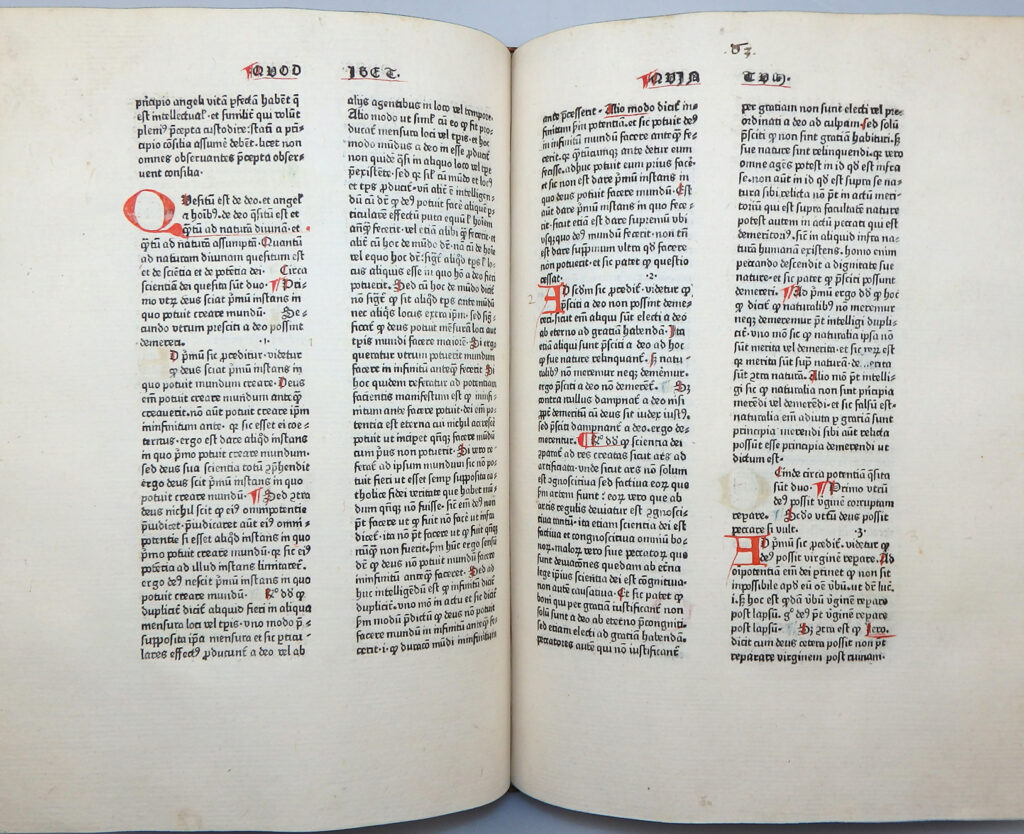 QVOD IBET.
pricipio angeli vitā ꝑfectā habēt q̄
est intellectual. et similit̄ qui volūt
pleni⁹ p̄cepta custodire: statī a prī
cipio cōsilia assume debēt. licet non
omnes obseruantes p̄cepta obser⸗
uent consilia.
Qvesitū est de deo. et angel
a hoib⁹. de deo q̄sitū est et
q̄tū ad naturā diuinā. et
q̄tū ad naturā assumptā. Quantū
ad naturam diuinam quesitum est
et de sciētia et de potētia dei. Circa
scientiam dei quesita sūt duo. Pri
mo vtꝝ deus sciat pr̄mū instans in
quo potuit creare mundū. Se⸗
cundo vtrum presciti a deo possint
demereri. .1.
D pr̄mū sic ꝓceditur. videtur
ꝙ deus sciat pr̄mū instans in
quo potuit mundum creare. Deus
em̄ potuit creare mundum anteꝙ
creauerit. nō aūt potuit creare ip̄m
infinitum ante. ꝙ sic esset ei coe⸗
ternus. ergo est dare aliqd instans
in quo pr̄mo potuit creare mundum.
sed deus sua scientia totū ꝯp̄hendit
ergo deus scit pr̄mū instans in quo
potuit creare mundū. Sed ꝯtra
deus nichil scit ꝙ ei⁹ omnipotentie
p̄iudicet. p̄iudicaret aūt ei⁹ omni⸗
potentie si esset aliqd instans in quo
pr̄mo potuit creare mundū. ꝙ sic ei⁹
potētia ad illud instans limitaret̄.
ergo de⁹ nescit pr̄mū instans in quo
potuit creare mundū. Rº dd̄ ꝙ
duplicit̄ dicit̄ aliquid fieri in aliqua
mensura loci vel tp̄is. vno modo p̄⸗
supposita ip̄a mensura et sic pticu⸗
lares effect⁹ ꝓducunt̄ a deo vel ab
alijs agentibus in loco vel tempore.
Alio modo ut simĺ cū eo ꝙ fit pro⸗
ducat̄ mensura loci vel tp̄is. et hoc
modo mūdus a deo in esse ꝓducit̄
non quidē q̄si in aliquo loco vel tp̄e
p̄existēte. sed ꝙ simĺ cū mūdo et loc⁹
et tp̄s ꝓducit̄. vn̄ alit̄ ē intelligen⸗
dū cū dr̄ ꝙ de⁹ potuit face aliquē p⸗
ticularē effectū puta equū l̄ hoīem
anq̄ fecerit. vel etiā alibi ꝙ fecerit. et
alit̄ cū hoc de mūdo dr̄. nā cū de hoīe
vel equo hoc dr̄. sigr̄ aliqd tp̄s l̄ lo⸗
cus aliquis esse in quo hō a deo fieri
potuerit. Sed cū hoc de mūdo dicit̄
nō sigr̄ ꝙ sit aliqd tp̄s ante mūdū
nec aliqis locus extra ip̄m. sed sig⸗
ficat̄ ꝙ deus potuit mēsurā loci aut
tp̄is mundi facere maiorē. Si ergo
queratur vtrum potuerit mundum
facere in infinitū anteꝙ fecerit. Si
hoc quidem referatur ad potentiam
facientis manifestum est ꝙ infi⸗
nitum ante facere potuit. dei em̄ po⸗
tentia est eterna cui nichil accrescē
potuit ut incipet qn̄q facere mūdū
cum prius non potuerit. Si vero re⸗
ferat̄ ad ipsum mundum sic nō po⸗
tuit fieri ut esset semp supposita ca⸗
tholice fidei veritate que habet mū⸗
dum qn̄q nō fuisse. sic̄ em̄ de⁹ non
pt̄ facere ut ꝙ fuit nō facere ut fuerit
numꝙ non fuerit. pr̄m hūc ergo sensū
deus nō potuit mundū facere
ininfinitū anteꝙ faceret. Sed ad
huc intelligēdū est ꝙ infinitū dicit̄
duplicit̄. vno mō in actu et sic dicit̄
pr̄m modū p̄dictū ꝙ deus nō potuit
facere mundū in infinitū anteꝙ fe⸗
cerit. i. ꝙ duracō mūdi ininfinitum
QVIN TVM.
83.
ante p̄cessent̄. Alio modo dicit̄ in⸗
finitum in potentia. et sic potuit de⁹
in infinitū mundū facere anteꝙ fe⸗
cerit. ꝙ quācūmque ante detur eum
fecisse. adhuc potuit eum prius facē⸗
et sic non est dare pr̄mū instans in
quo deus potuit facere mundū. Est
aūt dare pr̄mū instans in quo fece⸗
rit. sicut etiā est dare supremū ubi
vsqquo de⁹ mundū fecerit. non tn̄
est dare supp̄mum vltra qd facere
non potuerit. et sic patet ꝙ questio
cessat. .2.
AD scd̄m sic ꝓcedit̄. videtur ꝙ
p̄sciti a deo non possint deme⸗
reri. sicut em̄ aliqui sūt electi a deo
ab eterno ad gratiā habendā. Ita
etiam aliqui sunt p̄sciti a deo ad hoc
ꝙ sue nature relinquant̄. s̄ natu⸗
ralib⁹ nō meremur neqꝫ demēmur.
ergo p̄sciti a deo nō demerēt̄. Sꝫ
contra nullus dampnat̄ a deo nisi
ꝓpt̄ demeritū cū deus sic iudex iust⁹.
sed p̄sciti dampnant̄ a deo. ergo de⸗
merentur. Rº. dd̄ ꝙ scientia dei
ꝯparat̄ ad res creatas sicut ars ad
artificiata. vnde sicut ars nō solum
est ꝯgnoscitiua sed factiua eoꝝ que
pr̄m artem fiunt: eoꝝ vero que ab
artis regulis deuiatur est ꝯgnosci⸗
tiua tantū. ita etiam scientia dei est
factiua et congnoscitiua omniū bo⸗
noꝝ. maloꝝ vero siue peccatoꝝ que
sunt deuiacōnes quedam ab eterna
lege ipius scientia dei est cognitiua
non autē causatiua. Et sic patet ꝙ
boni qui per gratiam iustificant̄ non
solū sunt a deo ab etērno p̄cogniti.
sed etiam electi ad gratiā habendā.
peccatores autē qui nō iustificant̄
per gratiam non sunt electi vel pre⸗
ordinati a deo ad culpam. sed solū
p̄sciti ꝙ non sint gratiā habituri. s̄
sue nature sint relinquendi. ꝙ vero
omne agēs potest in id qd est infra
se. non aūt in id qd est supra se na⸗
tura sibi relicta nō pt̄ in actū meri⸗
toriū qui est supra facultatē nature
potest autem in actū peccati qui est
demeritori⁹. sic̄ in aliquid infra na⸗
turā humanā existens. homo enim
peccando descendit a dignitate sue
nature. et sic patet ꝙ p̄sciti possunt
demereri. Ad pr̄mū ergo dd̄ ꝙ hoc
ꝙ dicit̄ ꝙ naturalib⁹ nō meremur
neqꝫ demeremur pt̄ intelligi dupli⸗
cit̄. vno mō sic ꝙ naturalia ipsa nō
sūt merita vel demerita. et sic verꝝ est
ꝙ merita sūt sup naturā.
sūt ꝯtra naturā. Alio mō pt̄ intelli⸗
gi sic ꝙ naturalia non sint pricipia
merēdi vel demerēdi. et sic falsū est.
naturalia em̄ adiuta p gratiā sūt
principia merendi sibi aūt relicta
possūt esse principia demerendi ut
dictum est.
Einde circa potentiā q̄sita
sūt duo. Primo vtrū
de⁹ possit v̓ginē corruptam
reꝑare. Scd̄o vtrū deus possit
peccare si vult. .3.
AD pr̄mū sic ꝓcedit̄. videtur ꝙ
de⁹ possit virginē reꝑare. Ad
oīpotētiā em̄ dei ptinet ꝙ non sit
impossibile apd̄ eū oē v̓bū. ut dr̄ luc̄.
i. s̄ hoc est qd̄ā v̓bū v̓ginē reꝑare
post lapsū. gº de⁹ pt̄ v̓ginē reꝑare
post lapsū. Sꝫ ꝯtra est ꝙ Jero.
dicit cum deus cetera possit non pt̄
reparare virginem post ruinam.